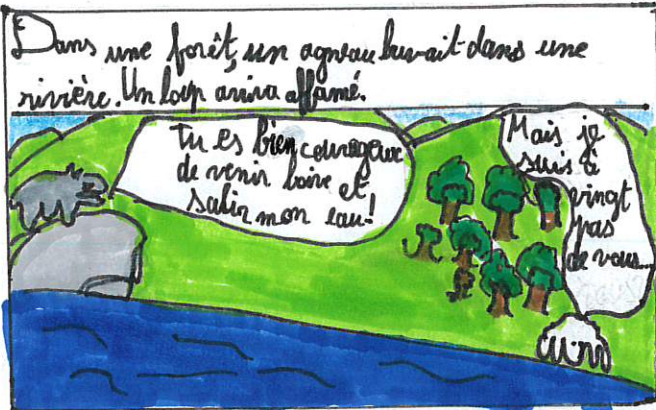 Dans une forêt, un agneau buvait dans une
rivière. Un loup arriva affamé.
Tu es bien courageux
de venir boire et
salir mon eau!
Mais je
suis à
vingt
pas
de vous...